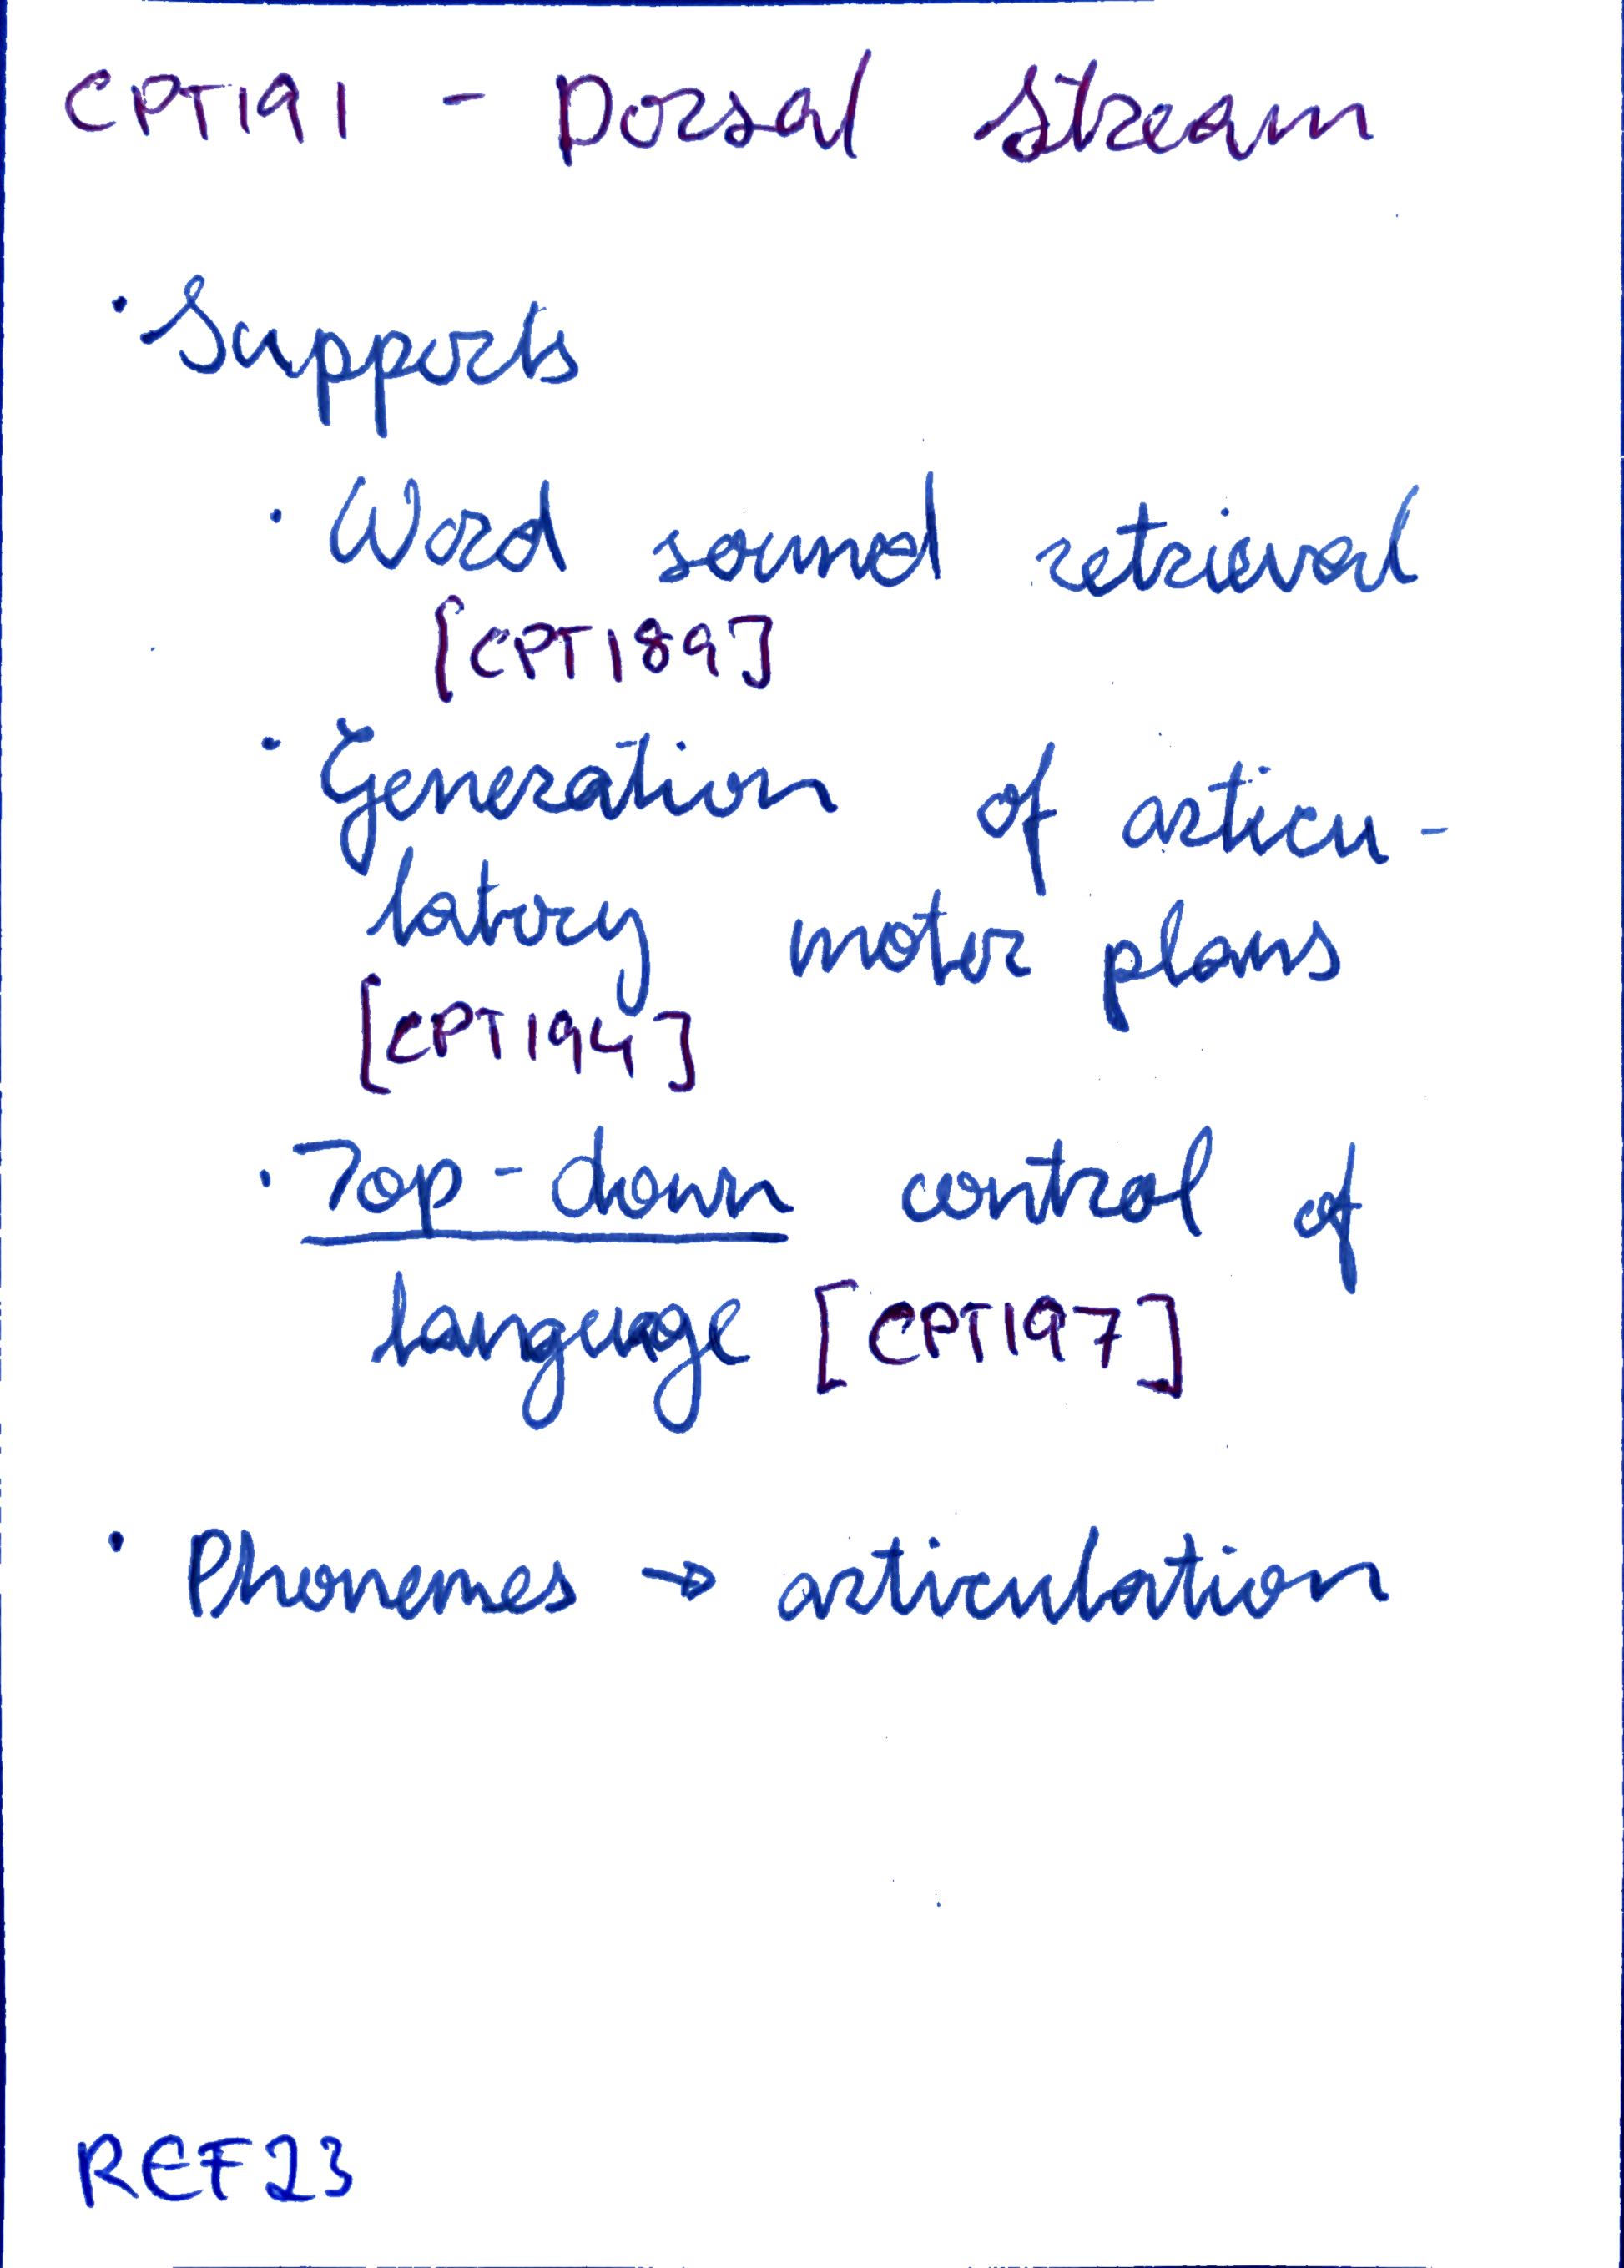 CPT191 - Dorsal Stream
· Supports
· Word sound retrieval
[CPT189]
· Generation of articu-
latory motor plans
[CPT194]
· Top-down control of
language [CPT197]
· Phonemes → articulation
REF23